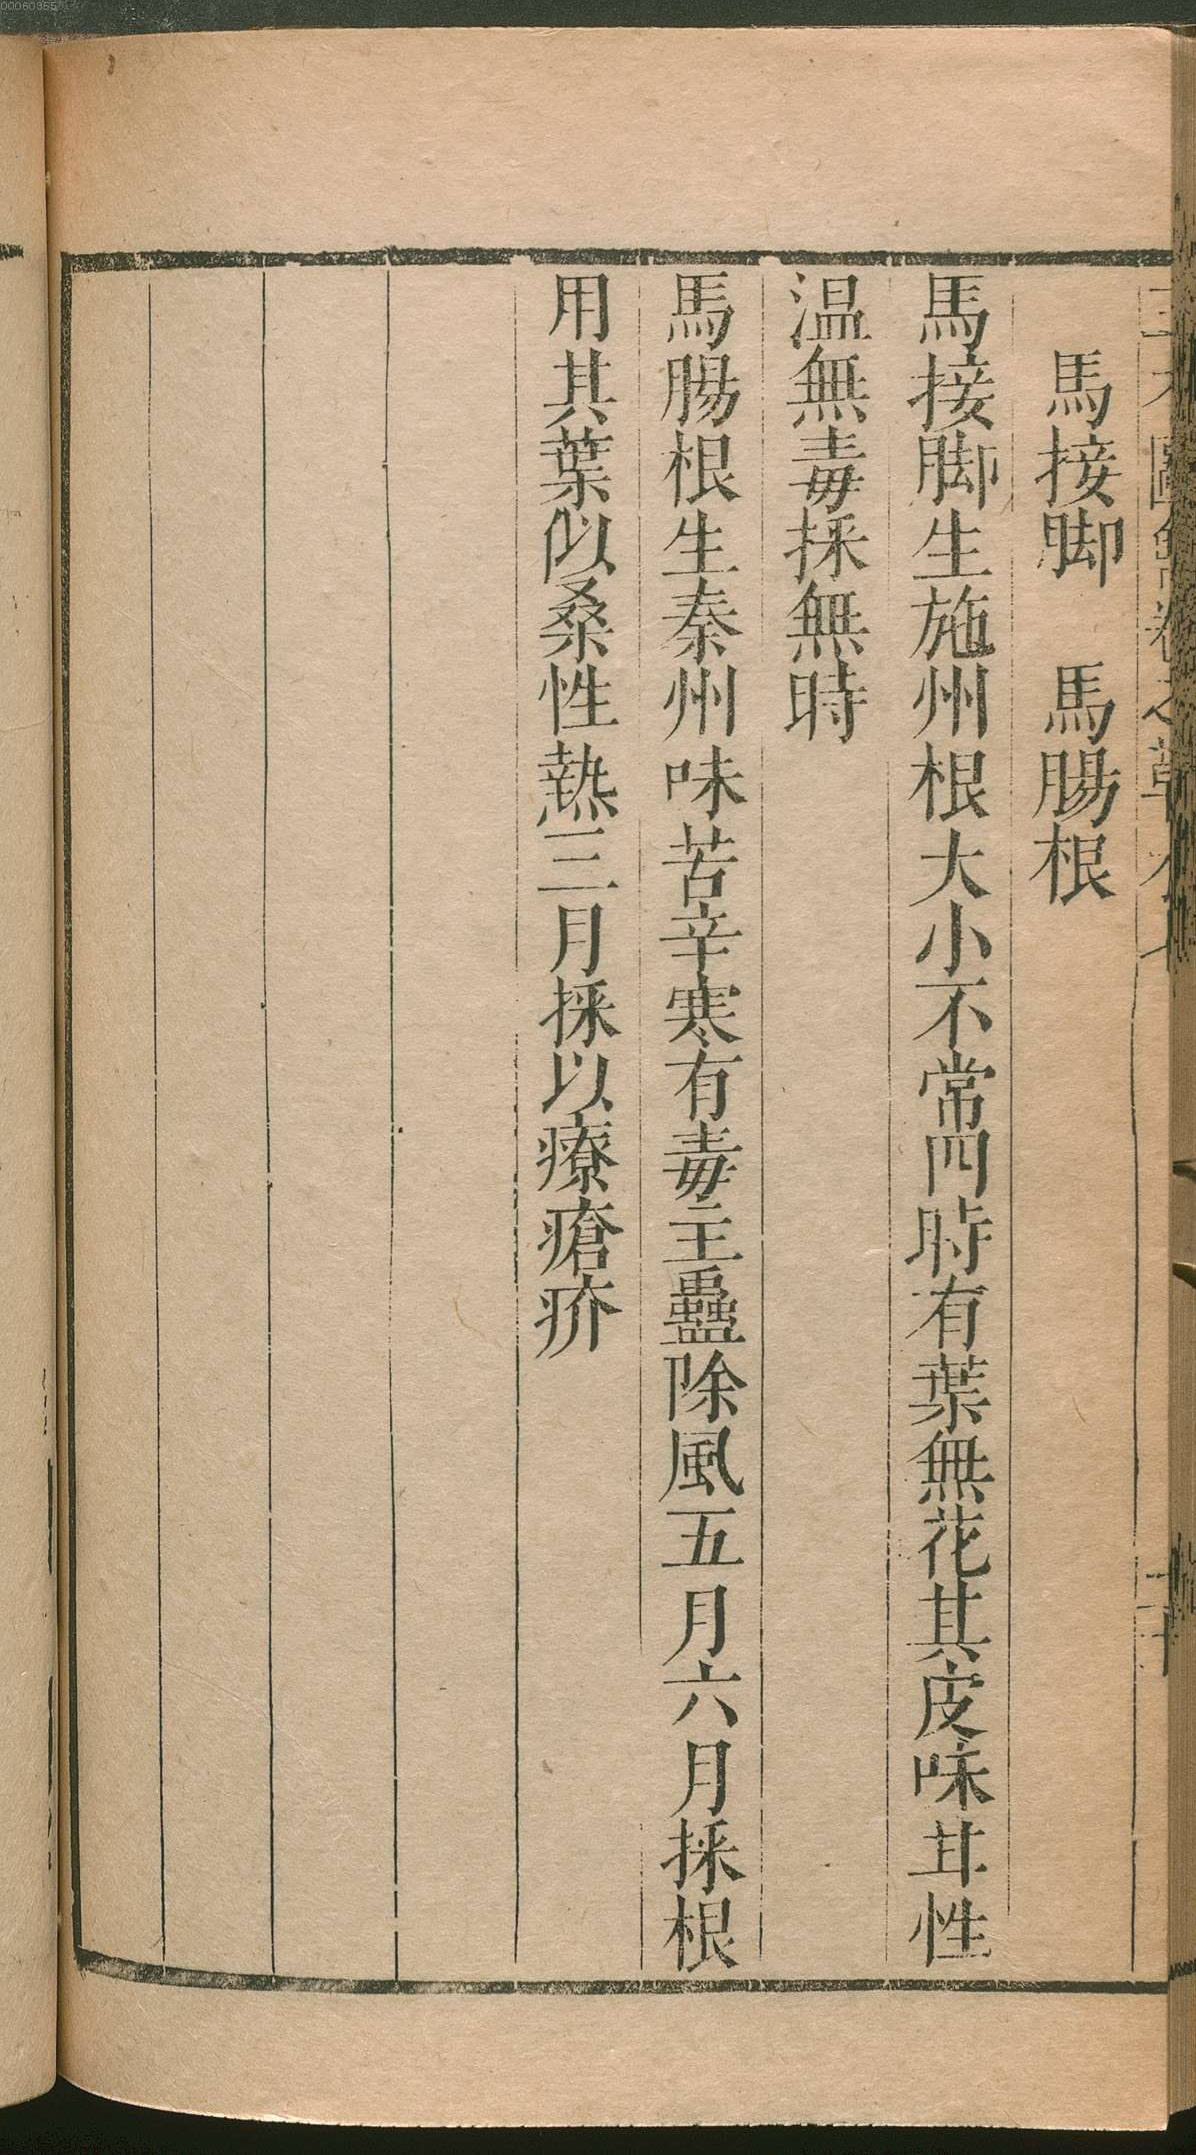 馬接脚　馬腸根
馬接脚生施州根大小不常四時有葉無花其皮味甘性
温無毒採無時
馬腸根生秦州味苦辛寒有毒主蠱除風五月六月採根
用其葉似桑性熱三月採以療瘡疥
00060355